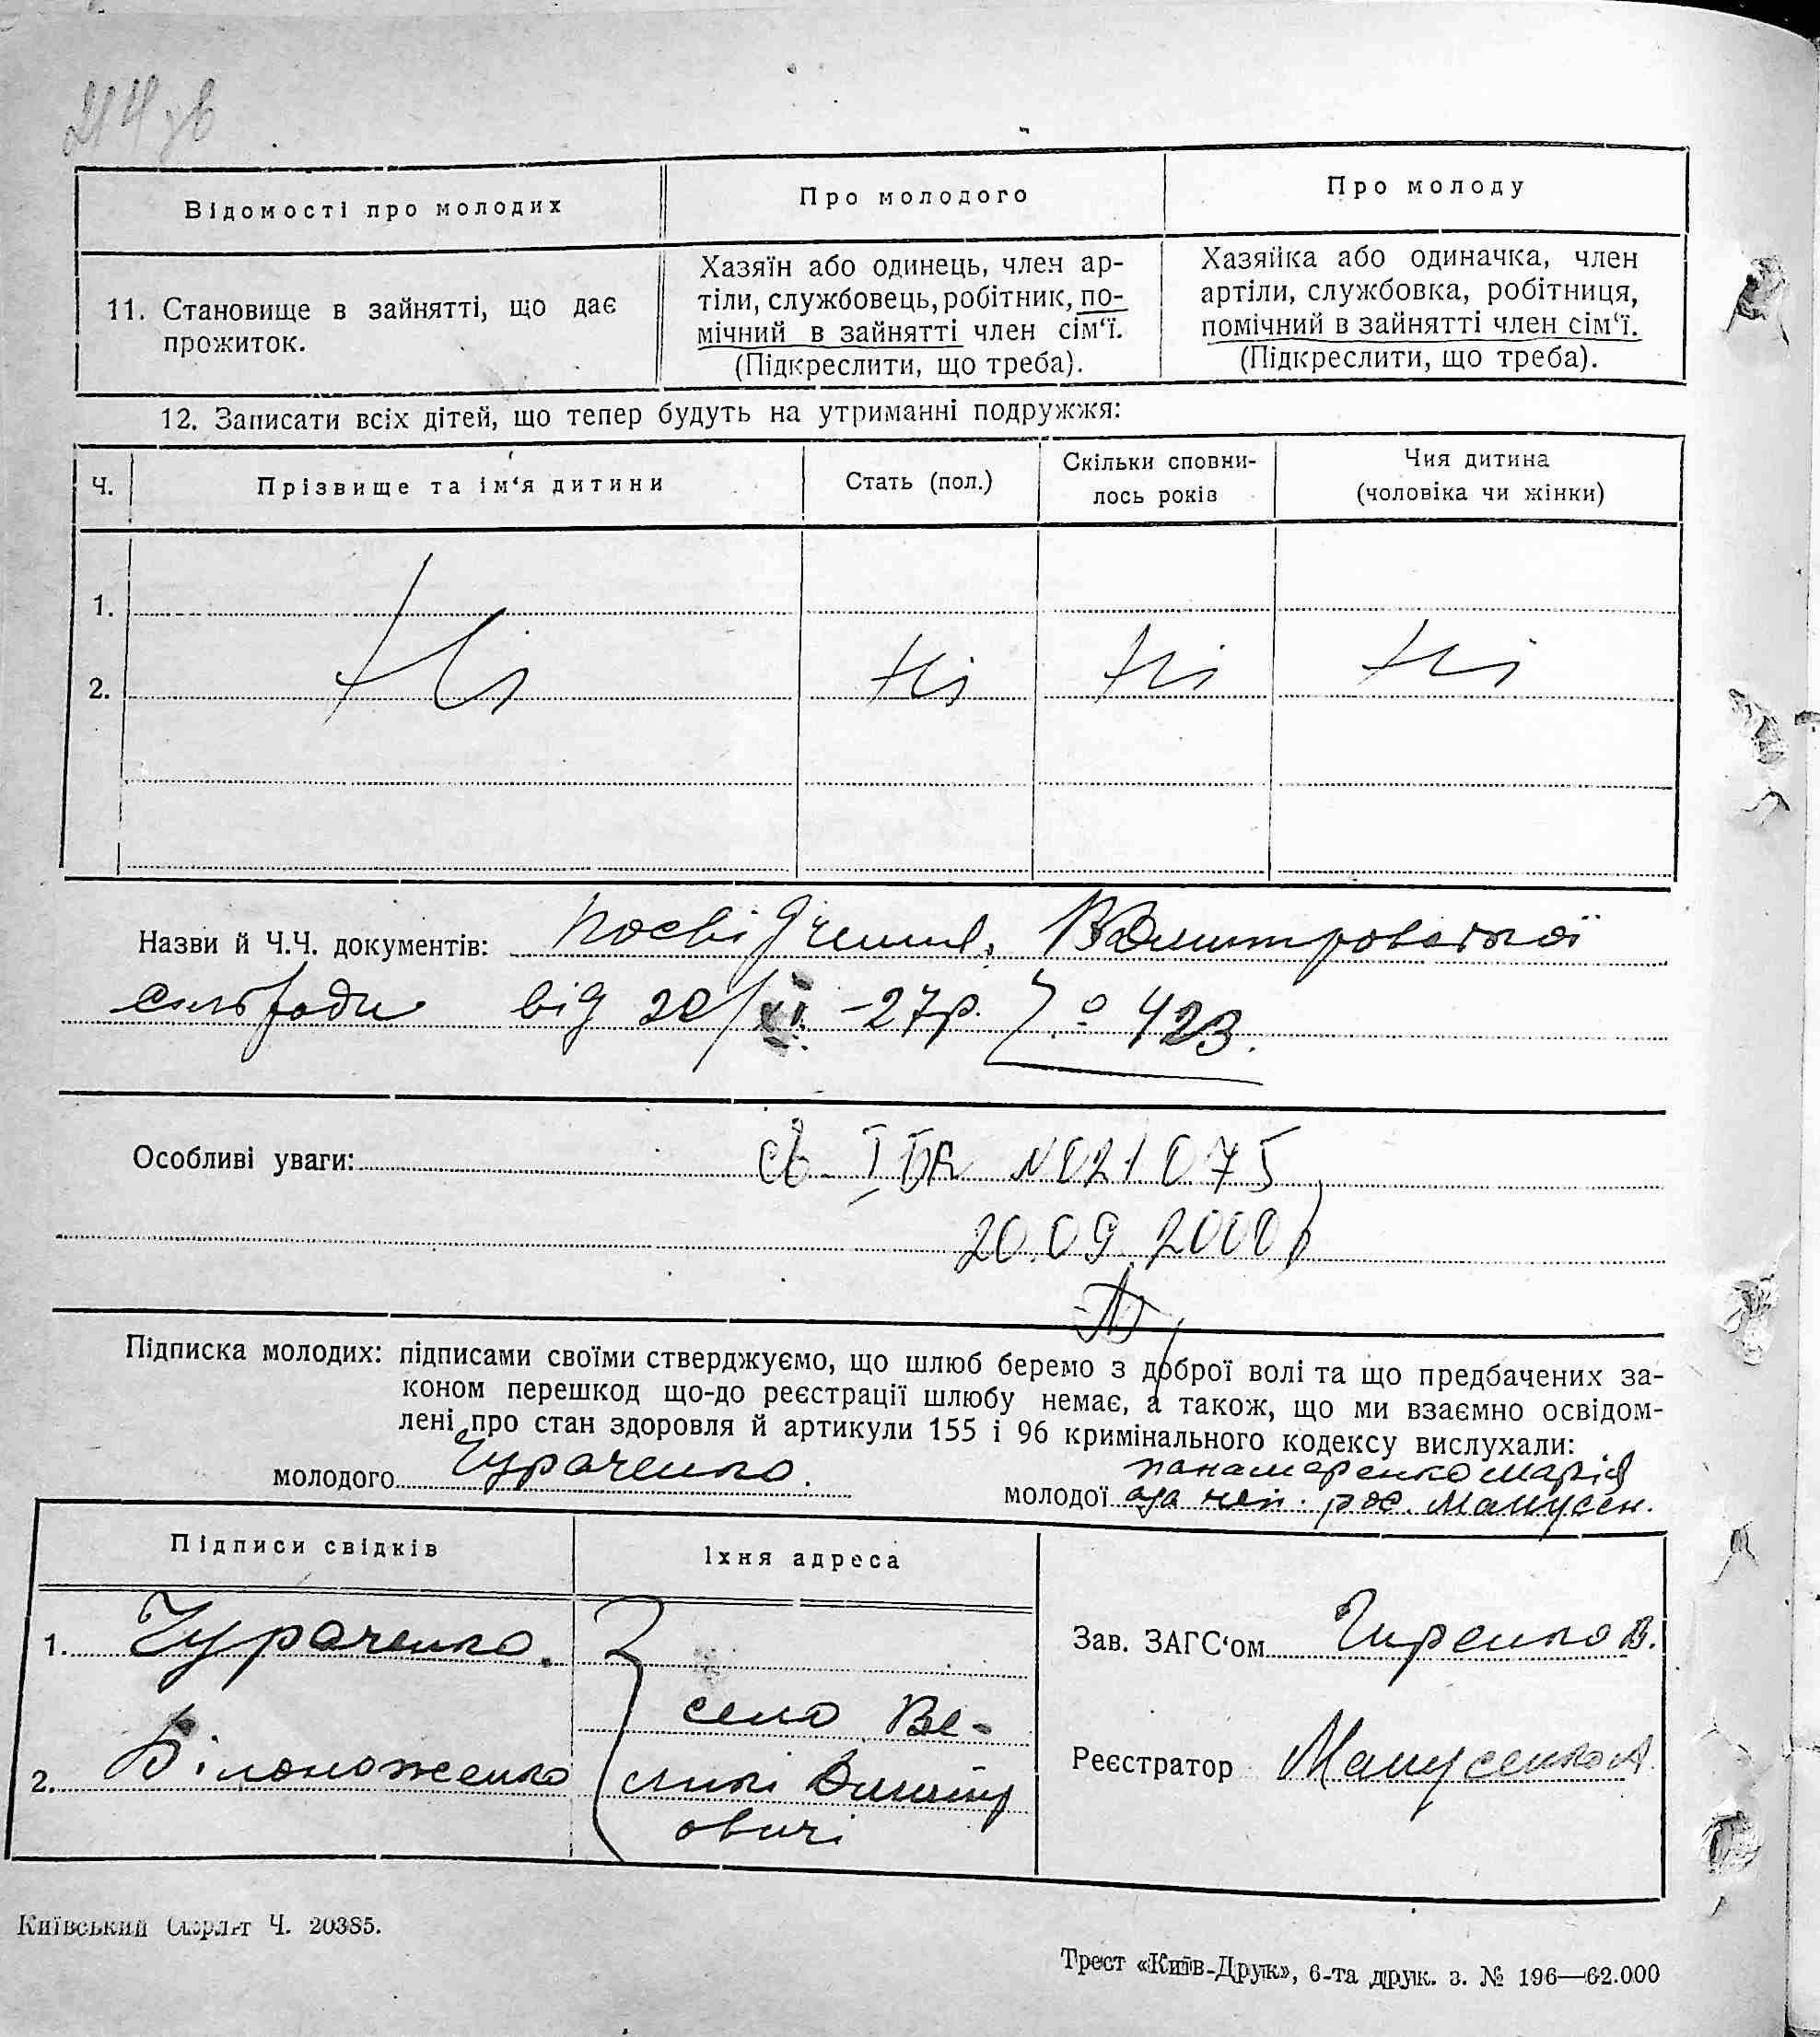 214 зв
Відомості про молодих
Про молодого
Про молоду
11. Становище в зайнятті, що дає
прожиток.
Хазяїн або одинець, член ар-
тіли, службовець, робітник, по-
мічний в зайнятті член сім‘ї.
(Підкреслити, що треба).
Хазяйка або одиначка, член
артіли, службовка, робітниця,
помічний в зайнятті член сім‘ї.
(Підкреслити, що треба).
12. Записати всіх дітей, що тепер будуть на утриманні подружжя:
Ч.
Прізвище та ім‘я дитини
Стать (пол.)
Скільки сповни-
лось років
Чия дитина
(чоловіка чи жінки)
1.
2. Ні Ні Ні Ні
Назви й Ч.Ч. документів: посвідчення ВДмитровської
сільради від 22/XI -27р. № 423.
Особливі уваги: св IБК N 021075
20.09.2000р
Підписка молодих: підписами своїми стверджуємо, що шлюб беремо з доброї волі та що предбачених за-
коном перешкод що-до реєстрації шлюбу немає, а також, що ми взаємно освідом-
лені про стан здоровля й артикули 155 і 96 кримінального кодексу вислухали:
молодого Чураченко.
Панамаренко Марія
молодої а за неї рос. Манусен.
Підписи свідків
Їхня адреса
1. Чураченко.
2. Білоноженко
село Ве-
ликі Дмитр
овичі
Зав. ЗАГС‘ом Чиренко В.
Реєстратор Манусенко А
Київський Окрліт Ч. 20385.
Трест «Київ-Друк», 6-та друк. з. № 196—62.000